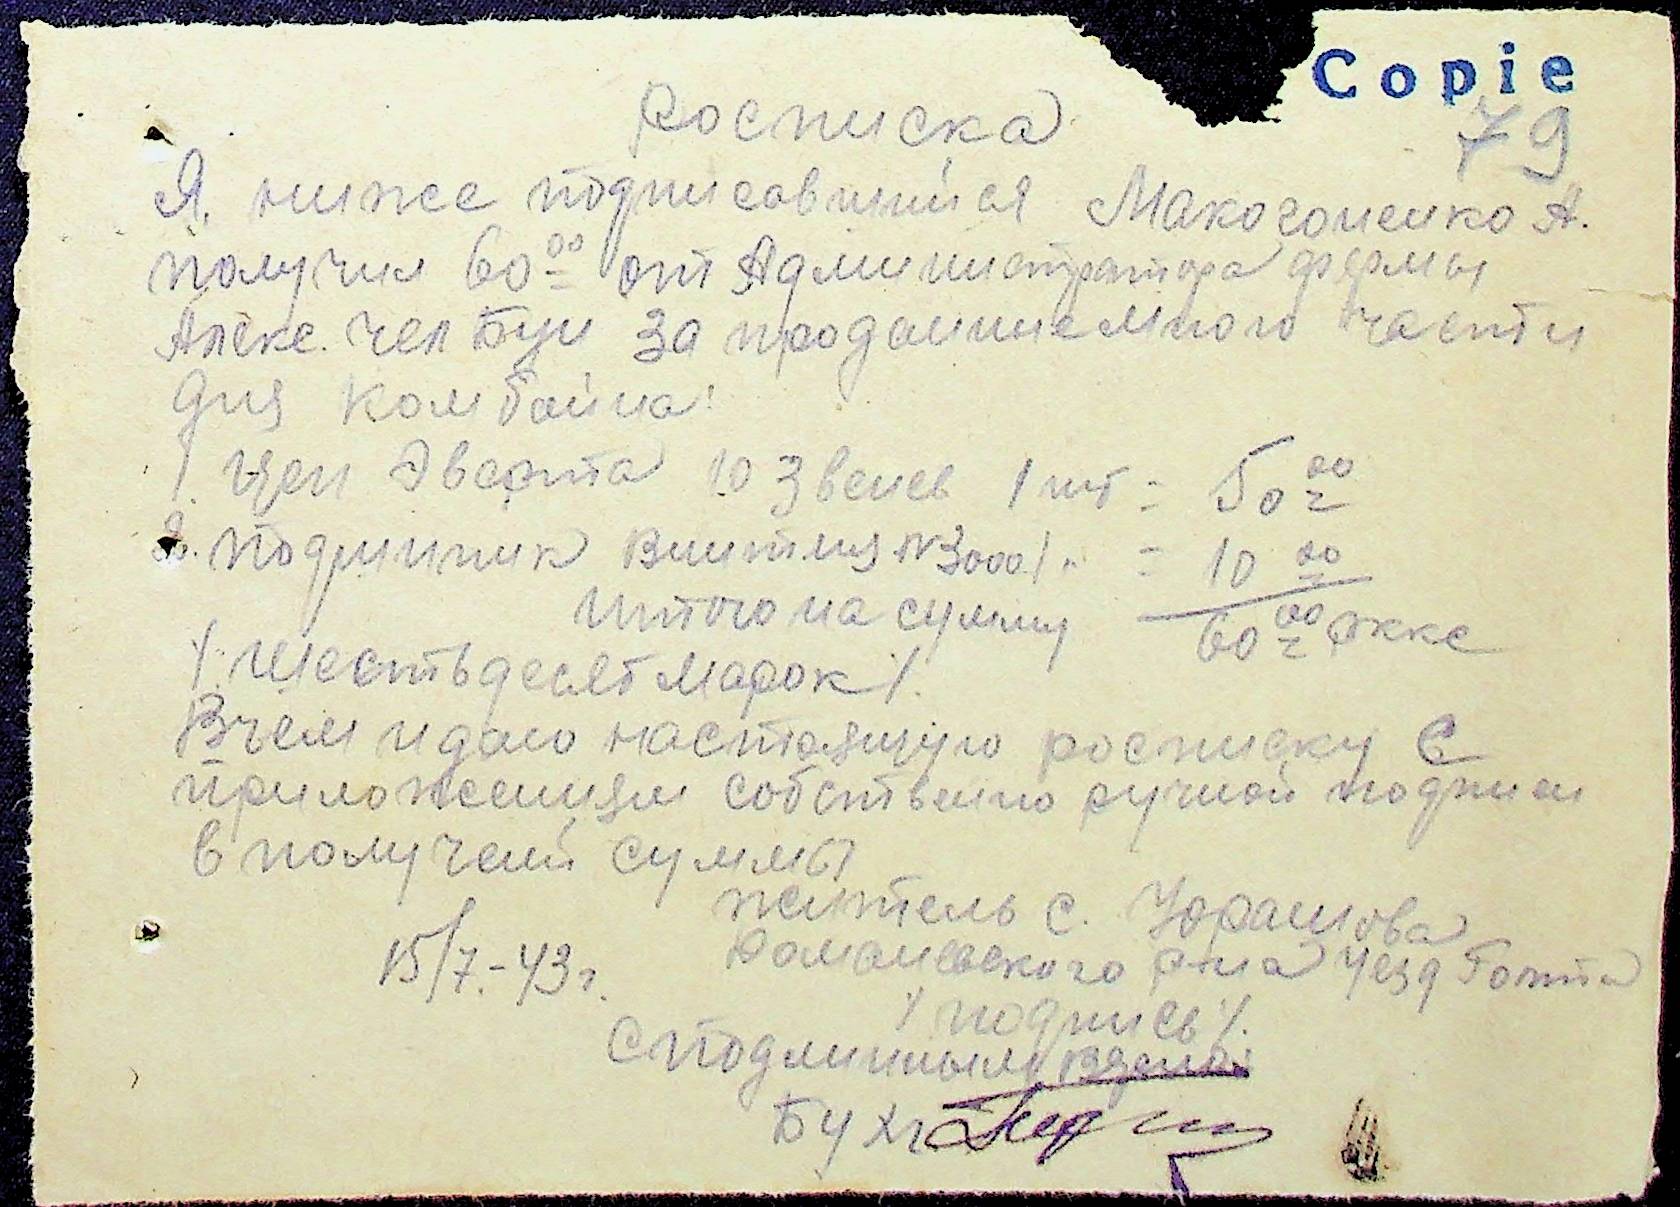 Copie
79
Росписка
Я, ниже подписавшийся Макогоненко А.
получил 60 00 от Администратора фермы
Алекс. за проданные много части
для комбайна:
1. Цеп Эверта 10 Звенев 1 шт = 50 00
2. подшипник Винтия №30001 " = 10 00
Итого на сумму 60 00 рккс
/. Шестьдесят марок /.
В чем и даю настоящую росписку с
приложениям собственно ручной подписи
в получений суммы
житель с.
15/7.-43 г. Доманевского р-на уезд Голта
/ подпись /.
С подлинным
Бухг.